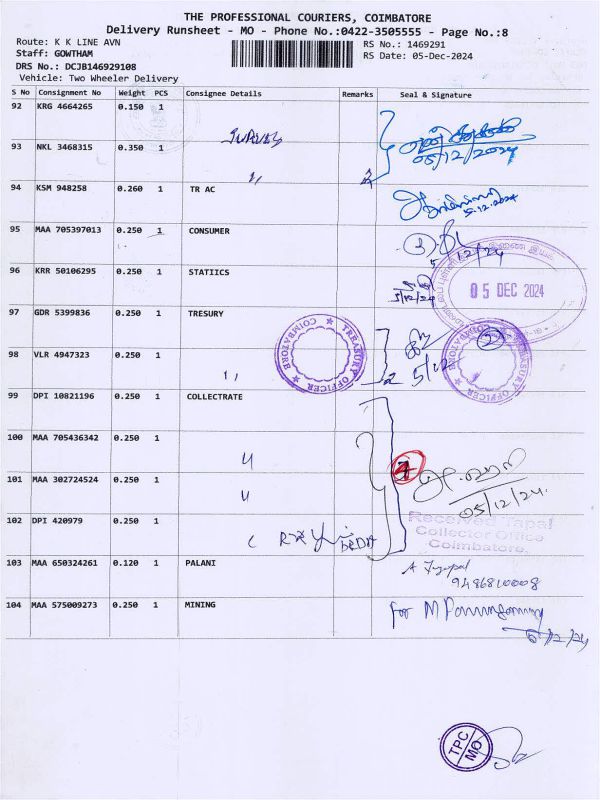 THE PROFESSIONAL COURIERS, COIMBATORE
Delivery Runsheet - MO - Phone No.:0422-3505555 - Page No.:8
Route: K K LINE AVN
RS No.: 1469291
Staff: GOWTHAM
RS Date: 05-Dec-2024
DRS No.: DCJB146929108
Vehicle: Two Wheeler Delivery
S No Consignment No Weight PCS Consignee Details Remarks Seal & Signature
92 KRG 4664265 0.150 1
05/12/2024
93 NKL 3468315 0.350 1
94 KSM 948258 0.260 1 TR AC
5.12.2024
95 MAA 705397013 0.250 1 CONSUMER
5/12/24
96 KRR 50106295 0.250 1 STATIICS
5/12/24
05 DEC 2024
97 GDR 5399836 0.250 1 TRESURY
TREASURY OFFICER COIMBATORE
98 VLR 4947323 0.250 1
2
5/12
99 DPI 10821196 0.250 1 COLLECTRATE
100 MAA 705436342 0.250 1
4
101 MAA 302724524 0.250 1
05/12/24
Received Tapal
Collector Office
Coimbatore.
102 DPI 420979 0.250 1
103 MAA 650324261 0.120 1 PALANI
9486810008
104 MAA 575009273 0.250 1 MINING
for M
TPC
MO